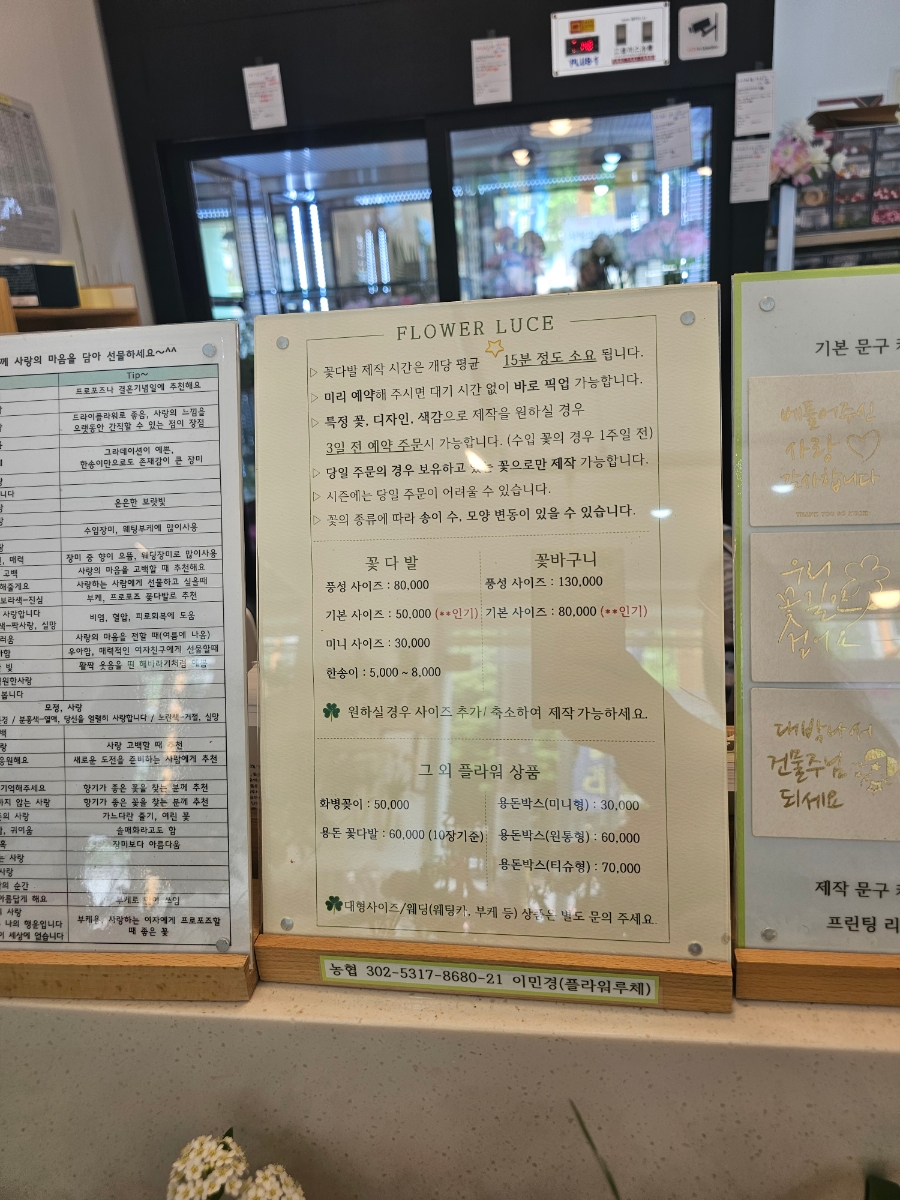 FLOWER LUCE
▷ 꽃다발 제작 시간은 개당 평균 15분 정도 소요 됩니다.
▷ 미리 예약해 주시면 대기 시간 없이 바로 픽업 가능합니다.
▷ 특정 꽃, 디자인, 색감으로 제작을 원하실 경우
3일 전 예약 주문시 가능합니다. (수입 꽃의 경우 1주일 전)
▷ 당일 주문의 경우 보유하고 있는 꽃으로만 제작 가능합니다.
▷ 시즌에는 당일 주문이 어려울 수 있습니다.
▷ 꽃의 종류에 따라 송이 수, 모양 변동이 있을 수 있습니다.
꽃 다 발
풍성 사이즈 : 80,000
기본 사이즈 : 50,000 (**인기)
미니 사이즈 : 30,000
한송이 : 5,000 ~ 8,000
꽃바구니
풍성 사이즈 : 130,000
기본 사이즈 : 80,000 (**인기)
원하실경우 사이즈 추가/ 축소하여 제작 가능하세요.
그 외 플라워 상품
화병꽂이 : 50,000
용돈 꽃다발 : 60,000 (10장기준)
용돈박스(미니형) : 30,000
용돈박스(원통형) : 60,000
용돈박스(티슈형) : 70,000
대형사이즈/웨딩(웨딩카, 부케 등) 상품은 별도 문의 주세요.
농협 302-5317-8680-21 이민경(플라워루체)
께 사랑의 마음을 담아 선물하세요~^^
Tip~
프로포즈나 결혼기념일에 추천해요
드라이플라워로 좋음, 사랑의 느낌을
오랫동안 간직할 수 있는 점이 장점
그라데이션이 예쁜,
한송이만으로도 존재감이 큰 장미
은은한 보랏빛
수입장미, 웨딩부케에 많이사용
장미 중 향이 으뜸, 웨딩장미로 많이사용
사랑의 마음을 고백할 때 추천해요
사랑하는 사람에게 선물하고 싶을때
부케, 프로포즈 꽃다발로 추천
비염, 혈압, 피로회복에 도움
사랑의 마음을 전할 때(여름에 나옴)
우아함, 매력적인 여자친구에게 선물할때
활짝 웃음을 띤 해바라기처럼
모정, 사랑
사랑 고백할 때 추천
새로운 도전을 준비하는 사람에게 추천
향기가 좋은 꽃을 찾는 분께 추천
향기가 좋은 꽃을 찾는 분께 추천
가느다란 줄기, 여린 꽃
솔매화라고도 함
장미보다 아름다움
부케용, 사랑하는 여자에게 프로포즈할
때 좋은 꽃
기본 문구
베풀어주신
사랑
감사합니다
우리
꽃길만
걸어요
대박나서
건물주님
되세요
제작 문구
프린팅